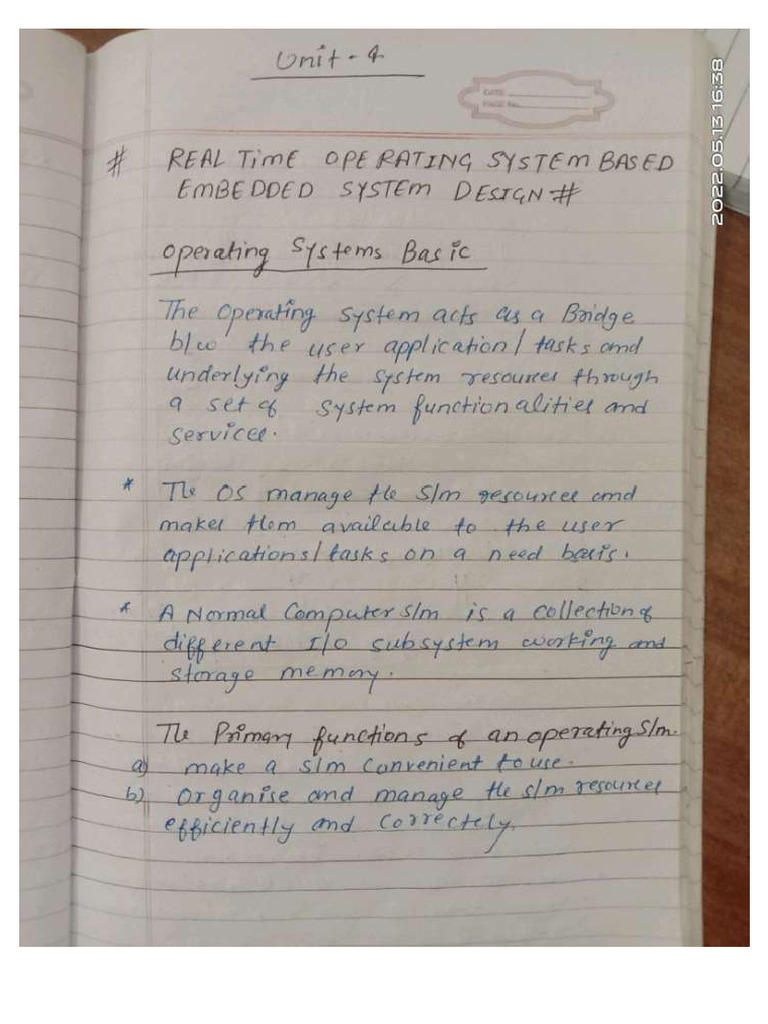 Unit - 4
DATE
PAGE No.
2022.05.13 16:38
# REAL TIME OPERATING SYSTEM BASED
EMBEDDED SYSTEM DESIGN #
Operating Systems Basic
The Operating System acts as a Bridge
b/w the user application/tasks and
underlying the system resources through
a set of system functionalities and
services.
* The OS manage the S/m resources and
makes them available to the user
applications/tasks on a need basis.
* A Normal Computer S/m is a collection of
different I/O subsystem working and
storage memory.
The Primary functions of an operating S/m.
a) make a S/m Convenient to use.
b) Organise and manage the S/m resources
efficiently and Correctely.